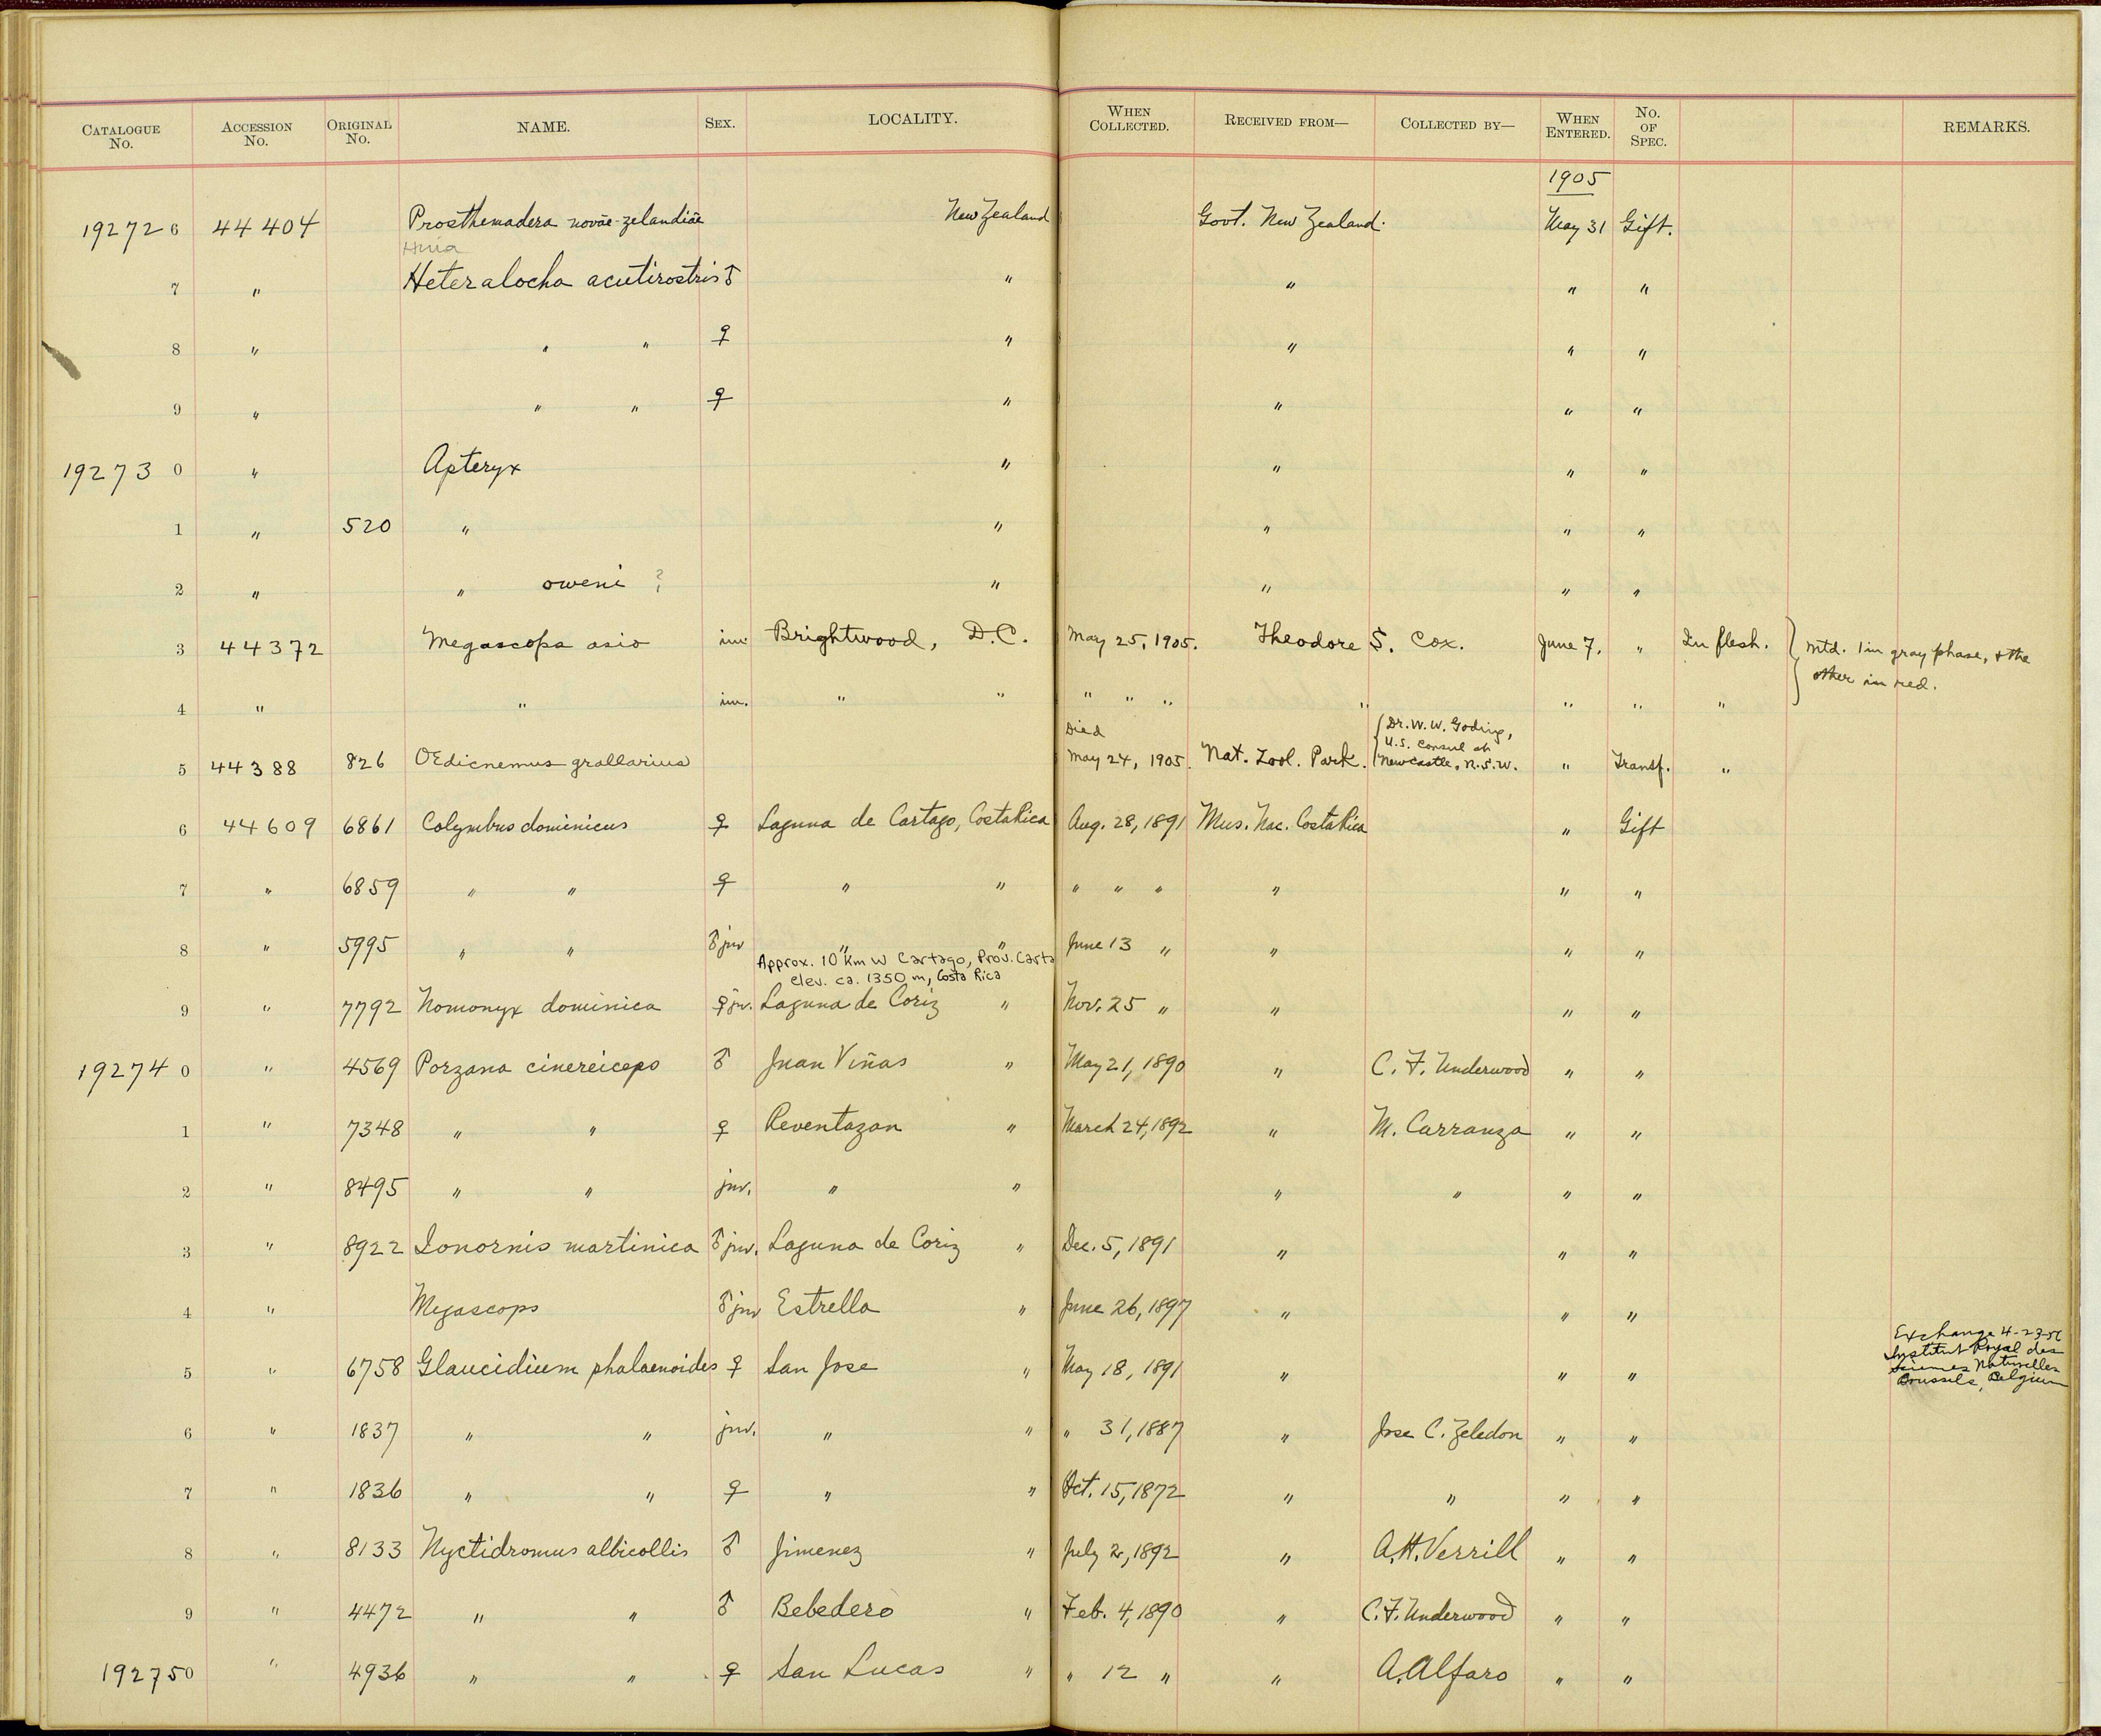 CATALOGUE No. ACCESSION No. ORIGINAL No. NAME. SEX. LOCALITY. WHEN COLLECTED. RECEIVED FROM— COLLECTED BY— WHEN ENTERED. No. OF SPEC. REMARKS.
1905
192726 44404 Prosthemadera novae-zelandiae New Zealand Govt. New Zealand. May 31 Gift.
Huia
7 " Heteralocha acutirostris ♂ " " " "
8 " " " ♀ " " " "
9 " " " ♀ " " " "
192730 " Apteryx " " " "
1 " 520 " " " " "
2 " " oweni ? " " " "
3 44372 Megascops asio im. Brightwood, D.C. May 25, 1905. Theodore S. Cox. June 7. " In flesh. } Mtd. 1 in gray phase, & the
other in red.
4 " " im. " " " " " " " " "
Died {Dr. W. W. Goding,
U.S. Consul at
5 44388 826 OEdicnemus grallarius May 24, 1905. Nat. Zool. Park. Newcastle, N.S.W. " Transf. "
6 44609 6861 Colymbus dominicus ♀ Laguna de Cartago, Costa Rica Aug. 28, 1891 Mus. Nac. Costa Rica " Gift
7 " 6859 " " ♀ " " " " " " " "
8 " 5995 " " ♂ juv " " June 13 " " " "
Approx. 10 km W Cartago, Prov. Carta
elev. ca. 1350 m, Costa Rica
9 " 7792 Nomonyx dominica ♀ juv. Laguna de Coriz " Nov. 25 " " " "
192740 " 4569 Porzana cinereiceps ♂ Juan Viñas " May 21, 1890 " C. F. Underwood " "
1 " 7348 " " ♀ Reventazon " March 24, 1892 " M. Carranza " "
2 " 8495 " " juv. " " " " " "
3 " 8922 Ionornis martinica ♂ juv. Laguna de Coriz " Dec. 5, 1891 " " "
4 " Megascops ♂ juv Estrella " June 26, 1897 " " "
Exchange 4-23-56
Institut Royal des
Sciences Naturelles
Brussels, Belgium
5 " 6758 Glaucidium phalaenoides ♀ San Jose " May 18, 1891 " " "
6 " 1837 " " juv. " " " 31, 1887 " Jose C. Zeledon " "
7 " 1836 " " ♀ " " Oct. 15, 1872 " " " "
8 " 8133 Nyctidromus albicollis ♂ Jimenez " July 2, 1892 " A. H. Verrill " "
9 " 4472 " " ♂ Bebedero " Feb. 4, 1890 " C. F. Underwood " "
192750 " 4936 " " ♀ San Lucas " " 12 " " A. Alfaro " "